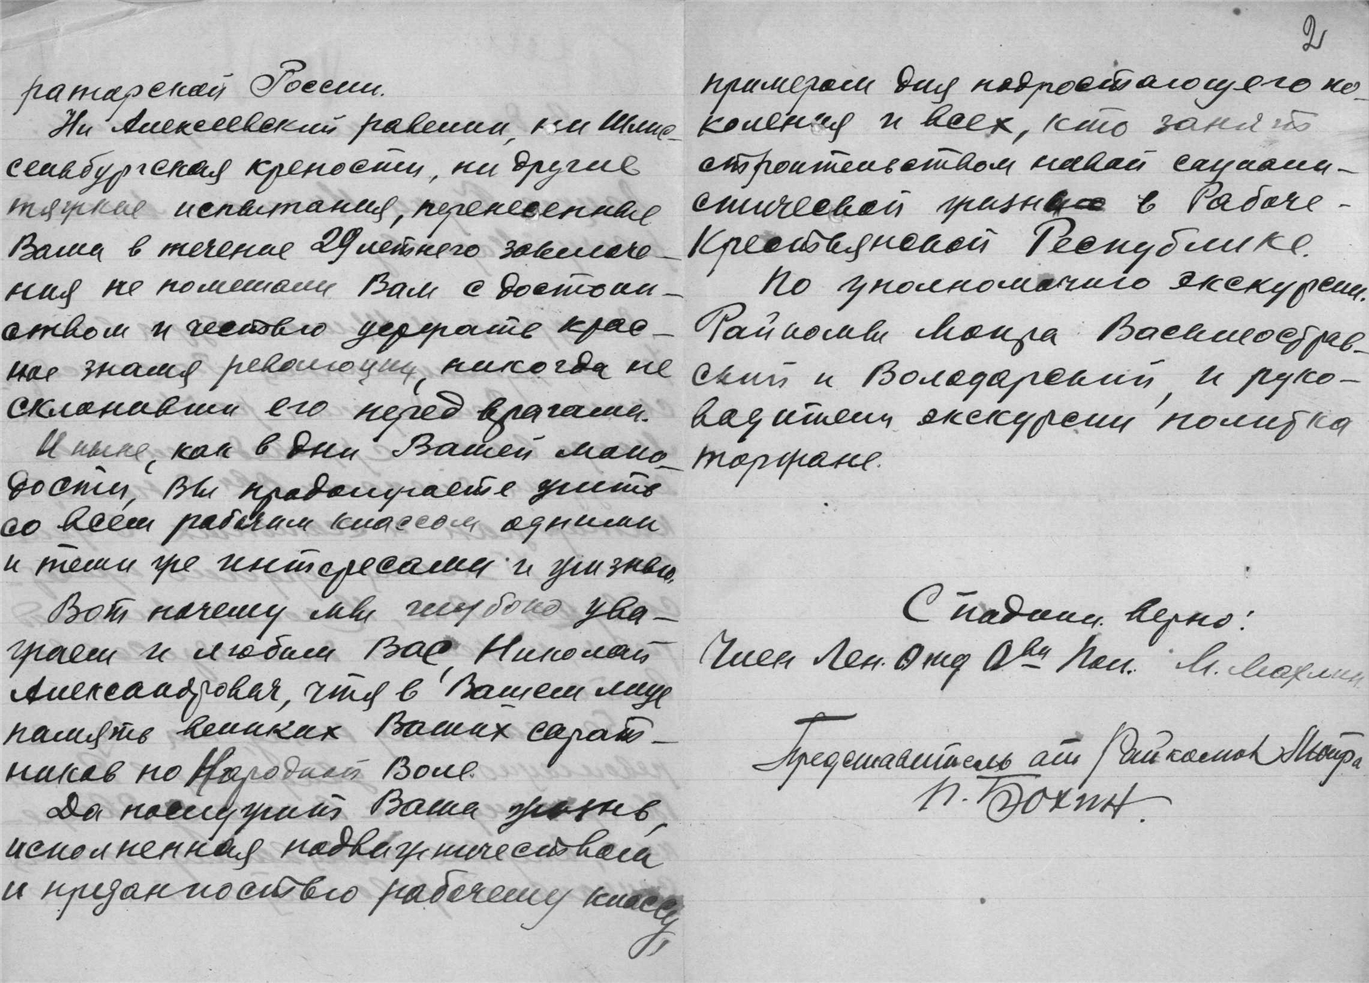 ратарской России.
Ни Алексеевский равелин, ни Шлис-
сельбургская крепость, ни другие
тяжкие испытания, перенесенные
Вами в течение 29 летнего заключе-
ния не помешали Вам с достоин-
ством и честью держать крас-
ное знамя революции, никогда не
склонивши его перед врагами.
И ныне, как в дни Вашей моло-
дости, Вы продолжаете жить
со всем рабочим классом одними
и теми же интересами и жизнью.
Вот почему мы глубоко ува-
жаем и любим Вас, Николай
Александрович, чтя в Вашем лице
память великих Ваших сорат-
ников по Народной Воле.
Да послужит Ваша жизнь,
исполненная подвижничеством
и преданностью рабочему классу,
2
примером для подростающего по-
коления и всех, кто занят
строительством новой социали-
стической жизни в Рабоче-
Крестьянской Республике.
По уполномочию экскурсии,
Райкомы Мопра Василеостров-
ский и Володарский, и руко-
водители экскурсии политка
торжане.
С подлин. верно:
Член Лен. Отд О-ва Пол. М.
Представитель от Райкомов Мопра
П. Бохин.